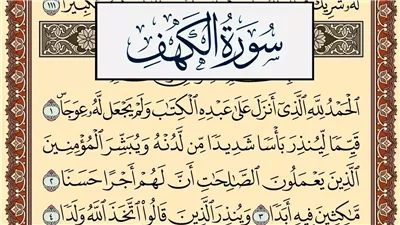 لَّهُۥ شَرِيكٌ
تَكْبِيرًا ١١١
سُورَةُ الكَهْفِ
ٱلْحَمْدُ لِلَّهِ ٱلَّذِىٓ أَنزَلَ عَلَىٰ عَبْدِهِ ٱلْكِتَٰبَ وَلَمْ يَجْعَل لَّهُۥ عِوَجَاۜ ١
قَيِّمًا لِّيُنذِرَ بَأْسًا شَدِيدًا مِّن لَّدُنْهُ وَيُبَشِّرَ ٱلْمُؤْمِنِينَ
ٱلَّذِينَ يَعْمَلُونَ ٱلصَّٰلِحَٰتِ أَنَّ لَهُمْ أَجْرًا حَسَنًا ٢
مَّٰكِثِينَ فِيهِ أَبَدًا ٣ وَيُنذِرَ ٱلَّذِينَ قَالُوا۟ ٱتَّخَذَ ٱللَّهُ وَلَدًا ٤